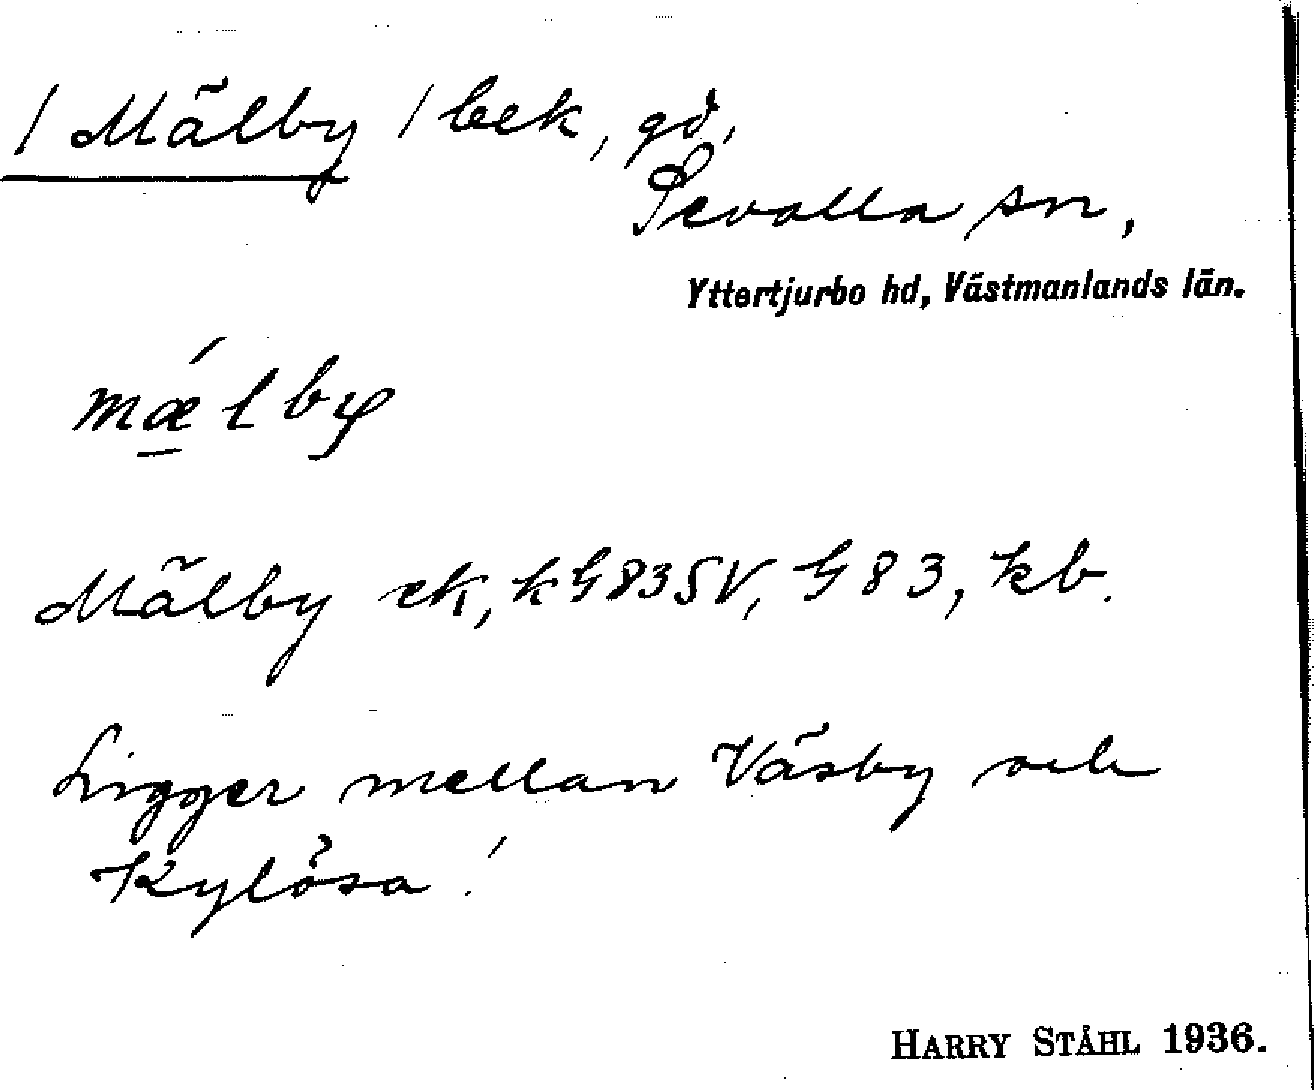 / Mälby / bek, gd,
Sevalla sn,
Yttertjurbo hd, Västmanlands län.
mǽlby
Mälby ek, k G83SV, G83, kb.
Ligger mellan Väsby och
Kylösa!
HARRY STÅHL 1936.